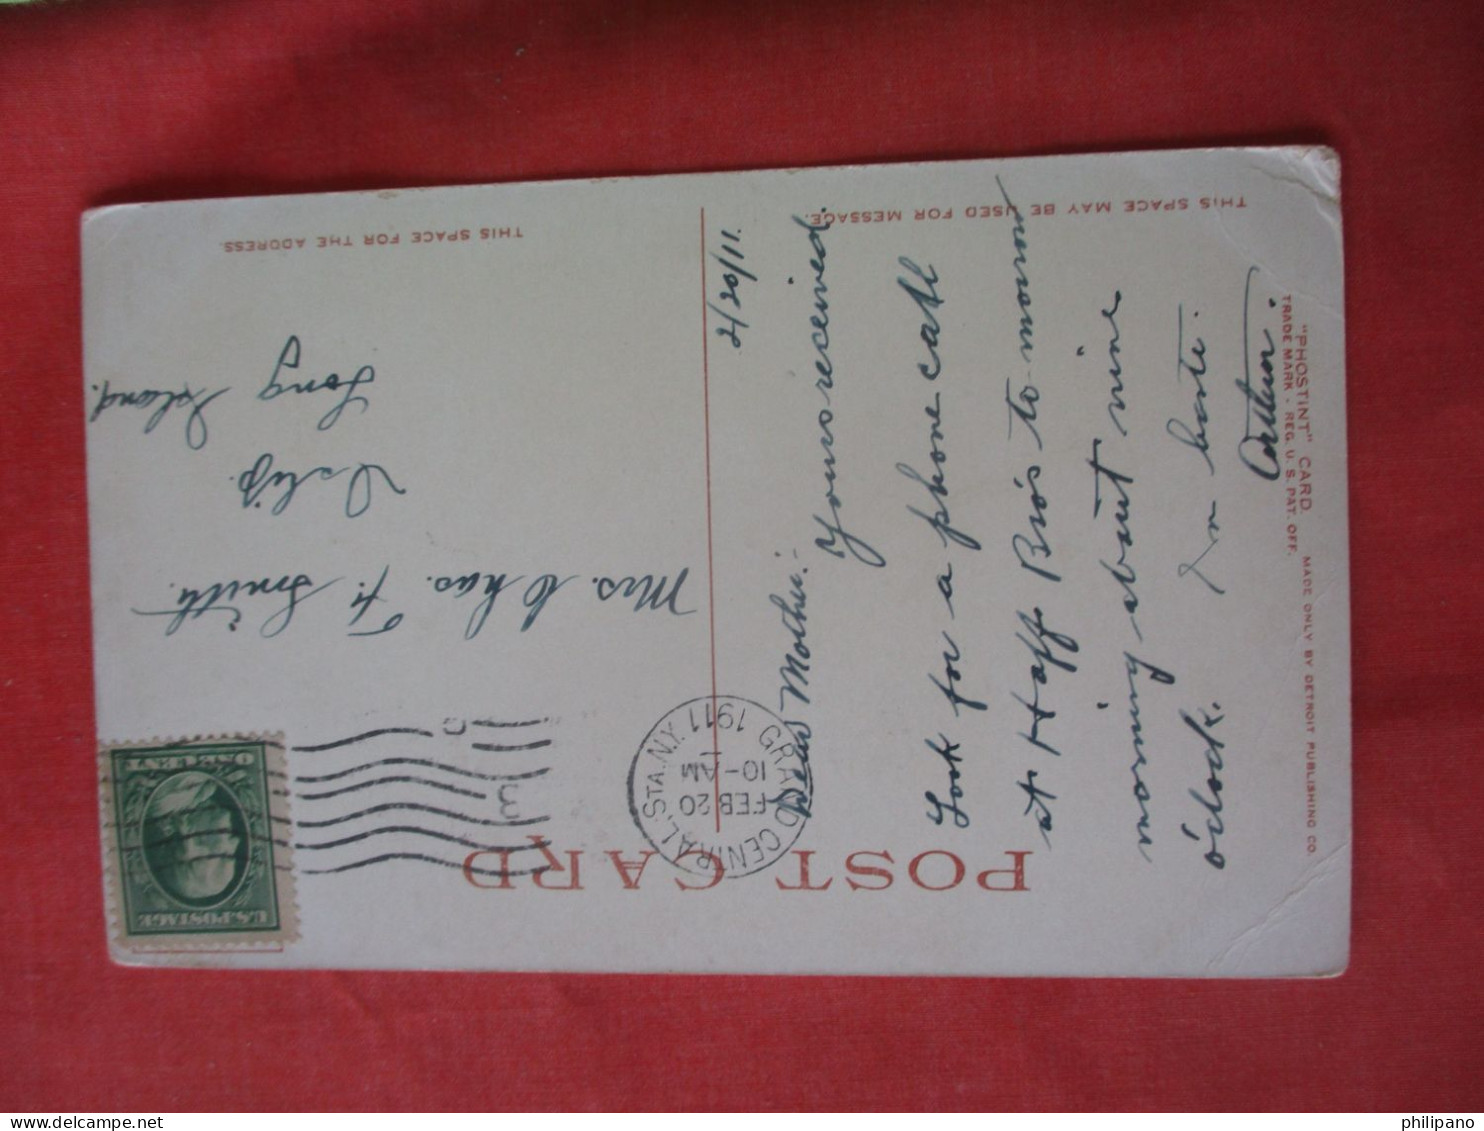 POST CARD
THIS SPACE MAY BE USED FOR MESSAGE.
THIS SPACE FOR THE ADDRESS.
"PHOSTINT" CARD. MADE ONLY BY DETROIT PUBLISHING CO.
TRADE MARK - REG. U. S. PAT. OFF.
2/20/11.
Dear Mother:-
Yours received.
Look for a phone call
at Haff Bro's to-morrow
morning about nine
o'clock. In haste.
Arthur.
GRAND CENTRAL STA. N.Y.
FEB 20
10-AM
1911
U.S. POSTAGE
ONE CENT
Mrs. Chas. F. Smith.
Islip.
Long
Island.
philipano
delcampe.net